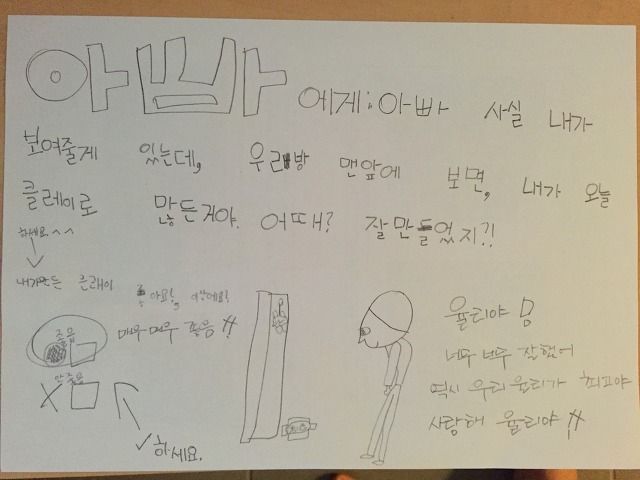 아빠에게: 아빠 사실 내가
보여줄게 있는데, 우리방 맨앞에 보면, 내가 오늘
클레이로 만든거야. 어때? 잘만들었지?!
하세요^^
내가만든 클래이
좋아요?,
매우매우 좋음!!
좋음
안좋음
✓하세요.
율리야!
너무 너무 잘했어
역시 우리 율리가 최고야
사랑해 율리야!!